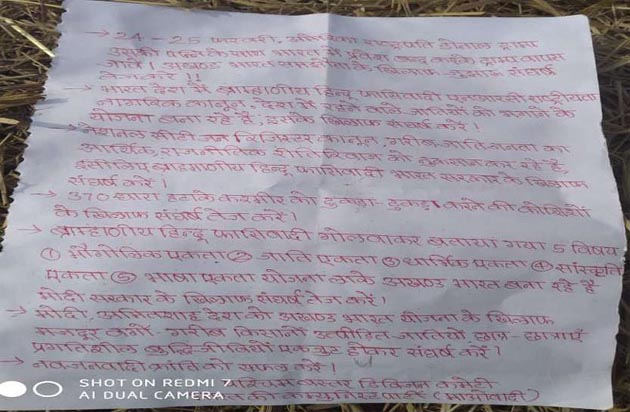 → 24-25 फरवरी, अमेरिका राष्ट्रपति डोनाल्ड ट्रम्प
भारत में प्रवेश वापस
जाने! अखण्ड भारत के खिलाफ जुझारू संघर्ष
तेज करें!!
→ भारत देश में ब्राह्मणीय हिन्दू फासिवादी एनआरसी राष्ट्रीयता
नागरिक कानून, देश में रहने वाले जातियों को भगाने के
योजना बना रहे है इसके खिलाफ संघर्ष करें।
→ नेशनल सीटी जन रजिस्टर कानून, गरीब जाति जनता का
आर्थिक, राजनीतिक रीतिरिवाज को नुकसान कर रहे है
इसीलिए ब्राह्मणीय हिन्दू फासिवादी भारत सरकार के खिलाफ
संघर्ष करें।
→ 370 धारा हटाके कश्मीर को टुकड़ा-टुकड़ा करने की कोशिशों
के खिलाफ संघर्ष तेज करें।
→ ब्राह्मणीय हिन्दू फासिवादी गोलवाकर बताया गया 5 विषय
① भौगोलिक एकता ② जाति एकता ③ धार्मिक एकता ④ सांस्कृति
एकता ⑤ भाषा एकता योजना लाके अखण्ड भारत बना रहे है
मोदी सरकार के खिलाफ संघर्ष तेज करें।
→ मोदी, अमितशाह देश को अखण्ड भारत योजना के खिलाफ
मजदूर वर्ग गरीब किसानों उत्पीड़ित जातियें छात्र-छात्राएं
प्रगतिशील बुद्धि-जीवियों एकजुट होकर संघर्ष करें।
→ नवजनवादी क्रांति को सफल करें।
बस्तर डिविजन कमेटी
कम्युनिस्ट पार्टी (माओवादी)
SHOT ON REDMI 7
AI DUAL CAMERA